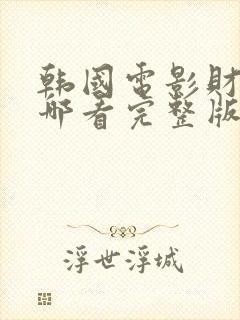 韩國電影財
哪看完整版
浮世浮城